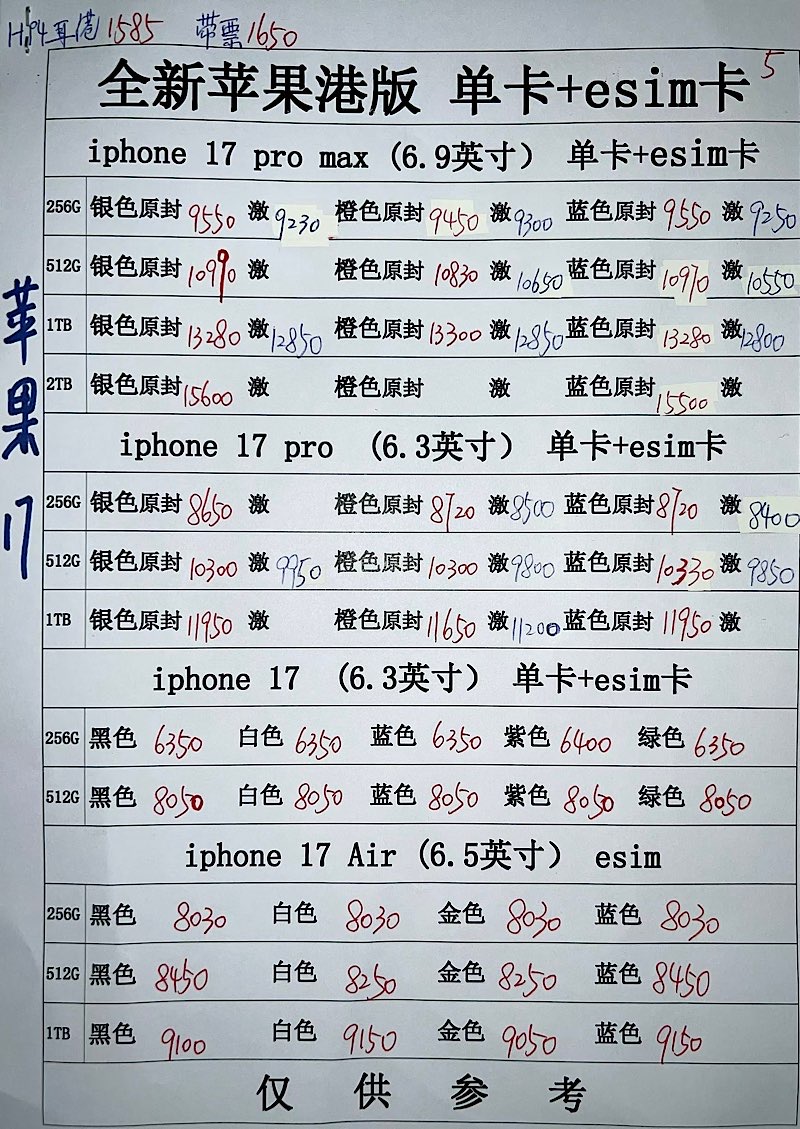 耳港1585 带票1650
5
全新苹果港版 单卡+esim卡
iphone 17 pro max (6.9英寸) 单卡+esim卡
256G 银色原封 9550 激 9230 橙色原封 9450 激 9300 蓝色原封 9550 激 9250
512G 银色原封 10990 激 橙色原封 10830 激 10650 蓝色原封 10970 激 10550
1TB 银色原封 13280 激 12850 橙色原封 13300 激 12850 蓝色原封 13280 激 12800
2TB 银色原封 15600 激 橙色原封 激 蓝色原封 15500 激
iphone 17 pro (6.3英寸) 单卡+esim卡
256G 银色原封 8650 激 橙色原封 8720 激 8500 蓝色原封 8720 激 8400
512G 银色原封 10300 激 9950 橙色原封 10300 激 9800 蓝色原封 10330 激 9850
1TB 银色原封 11950 激 橙色原封 11650 激 11200 蓝色原封 11950 激
iphone 17 (6.3英寸) 单卡+esim卡
256G 黑色 6350 白色 6350 蓝色 6350 紫色 6400 绿色 6350
512G 黑色 8050 白色 8050 蓝色 8050 紫色 8050 绿色 8050
iphone 17 Air (6.5英寸) esim
256G 黑色 8030 白色 8030 金色 8030 蓝色 8030
512G 黑色 8450 白色 8250 金色 8250 蓝色 8450
1TB 黑色 9100 白色 9150 金色 9050 蓝色 9150
仅供参考
苹果17